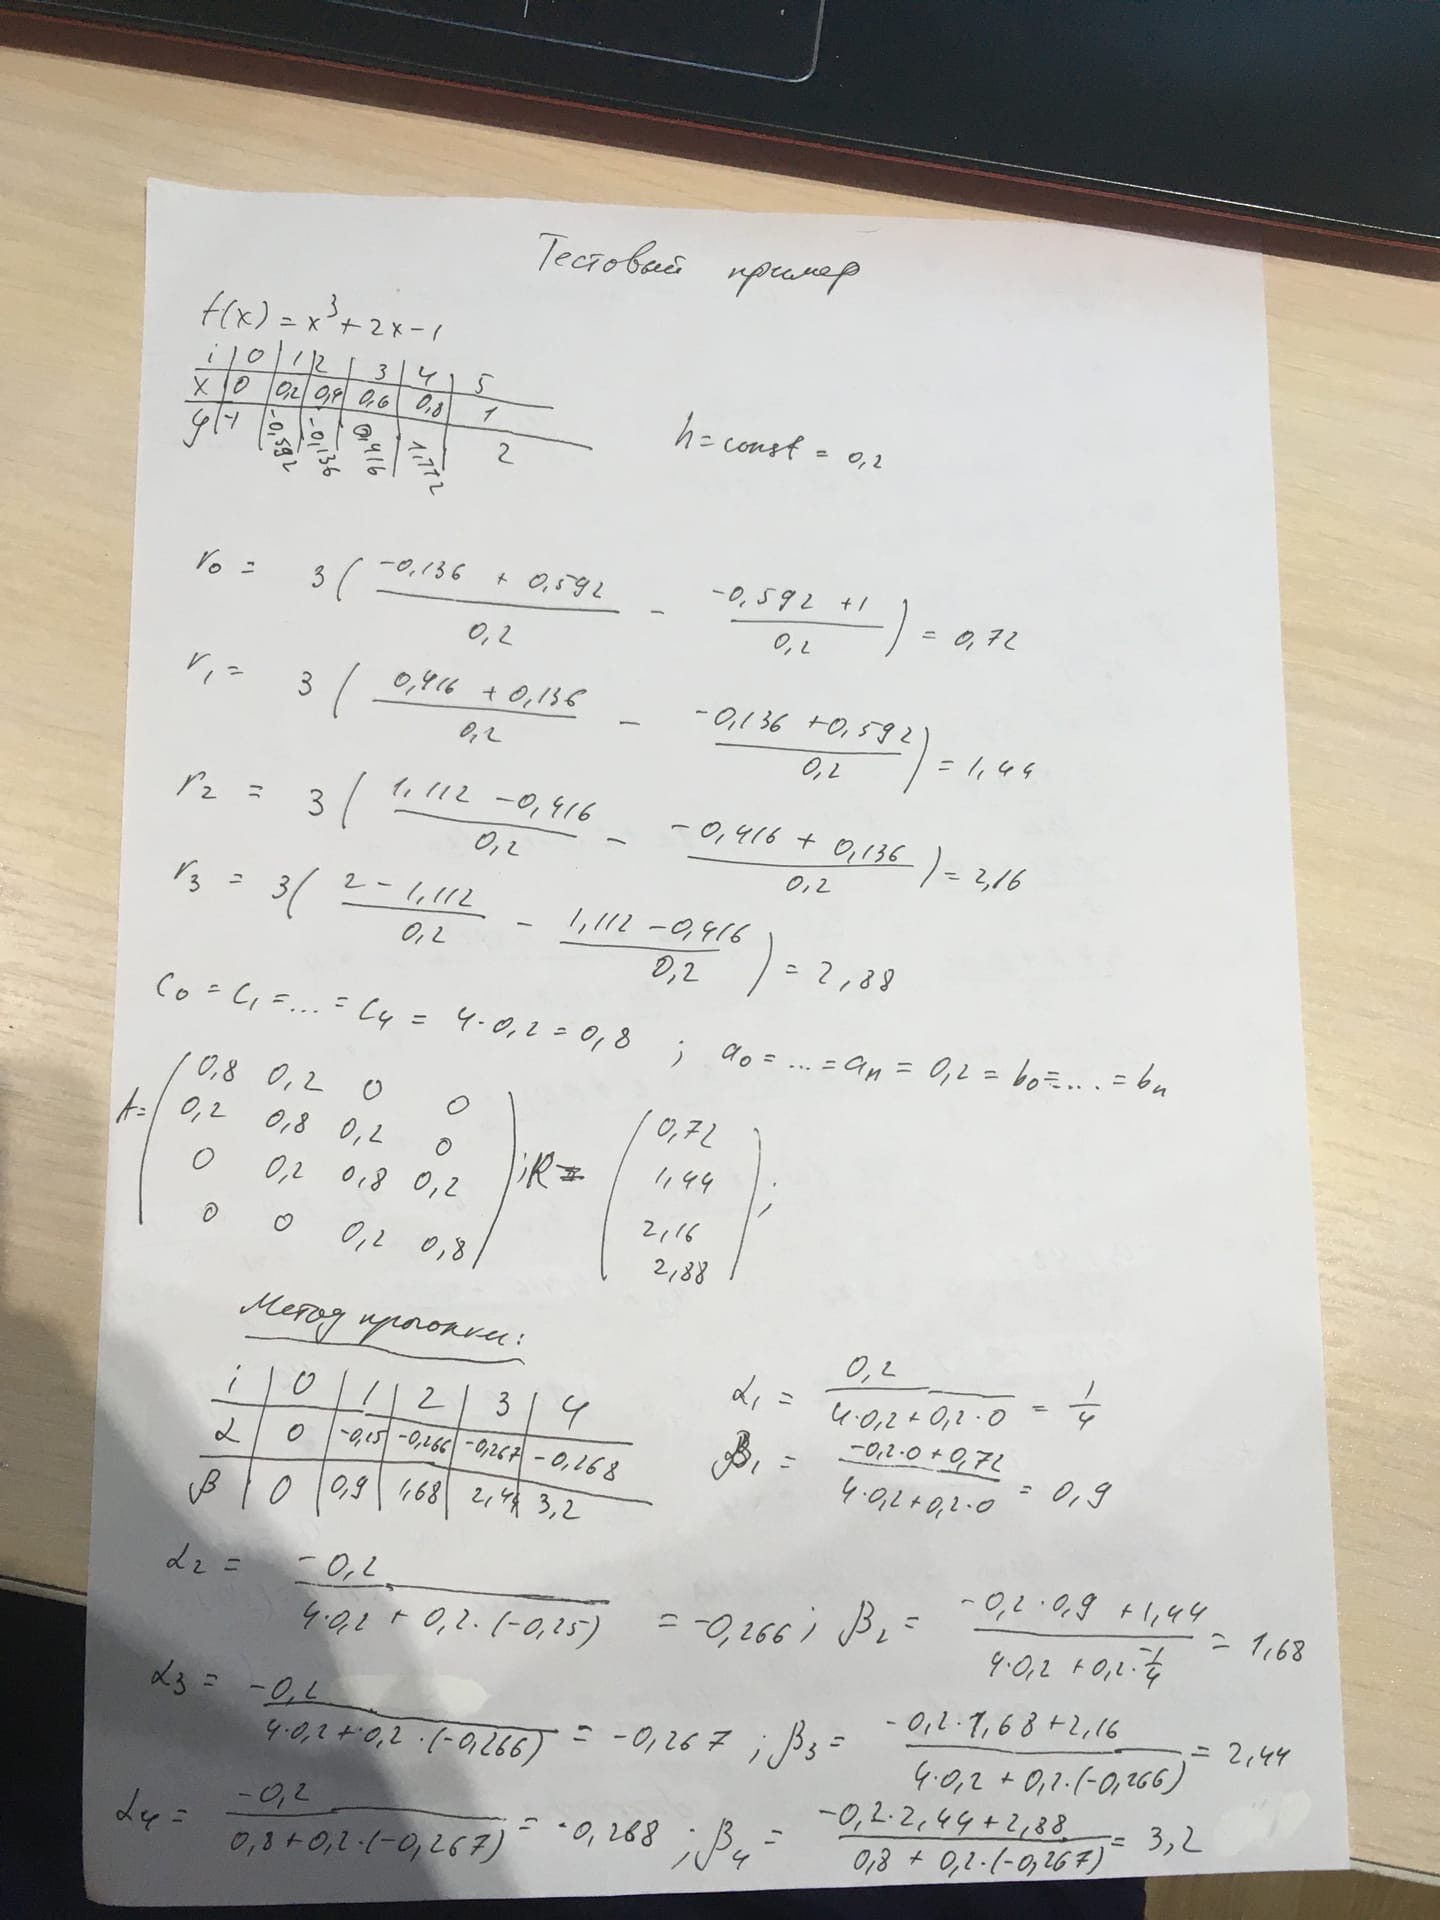 Тестовый пример
f(x) = x³ + 2x - 1
i | 0 | 1 | 2 | 3 | 4 | 5
x | 0 | 0,2 | 0,4 | 0,6 | 0,8 | 1
y | -1 | -0,592 | -0,136 | 0,416 | 1,112 | 2
h = const = 0,2
r₀ = 3 ( (-0,136 + 0,592)/0,2 - (-0,592 + 1)/0,2 ) = 0,72
r₁ = 3 ( (0,416 + 0,136)/0,2 - (-0,136 + 0,592)/0,2 ) = 1,44
r₂ = 3 ( (1,112 - 0,416)/0,2 - (-0,416 + 0,136)/0,2 ) = 2,16
r₃ = 3 ( (2 - 1,112)/0,2 - (1,112 - 0,416)/0,2 ) = 2,88
c₀ = c₁ = ... = c₄ = 4·0,2 = 0,8 ; a₀ = ... = aₙ = 0,2 = b₀ = ... = bₙ
A = ( 0,8 0,2 0 0
0,2 0,8 0,2 0
0 0,2 0,8 0,2
0 0 0,2 0,8 ) ; R = ( 0,72
1,44
2,16
2,88 ) ;
Метод прогонки:
i | 0 | 1 | 2 | 3 | 4
α | 0 | -0,25 | -0,266 | -0,267 | -0,268
β | 0 | 0,9 | 1,68 | 2,44 | 3,2
α₁ = 0,2/(4·0,2 + 0,2·0) = 1/4
β₁ = (-0,2·0 + 0,72)/(4·0,2 + 0,2·0) = 0,9
α₂ = -0,2/(4·0,2 + 0,2·(-0,25)) = -0,266 ; β₂ = (-0,2·0,9 + 1,44)/(4·0,2 + 0,2·-1/4) = 1,68
α₃ = -0,2/(4·0,2 + 0,2·(-0,266)) = -0,267 ; β₃ = (-0,2·1,68 + 2,16)/(4·0,2 + 0,2·(-0,266)) = 2,44
α₄ = -0,2/(0,8 + 0,2·(-0,267)) = -0,268 ; β₄ = (-0,2·2,44 + 2,88)/(0,8 + 0,2·(-0,267)) = 3,2